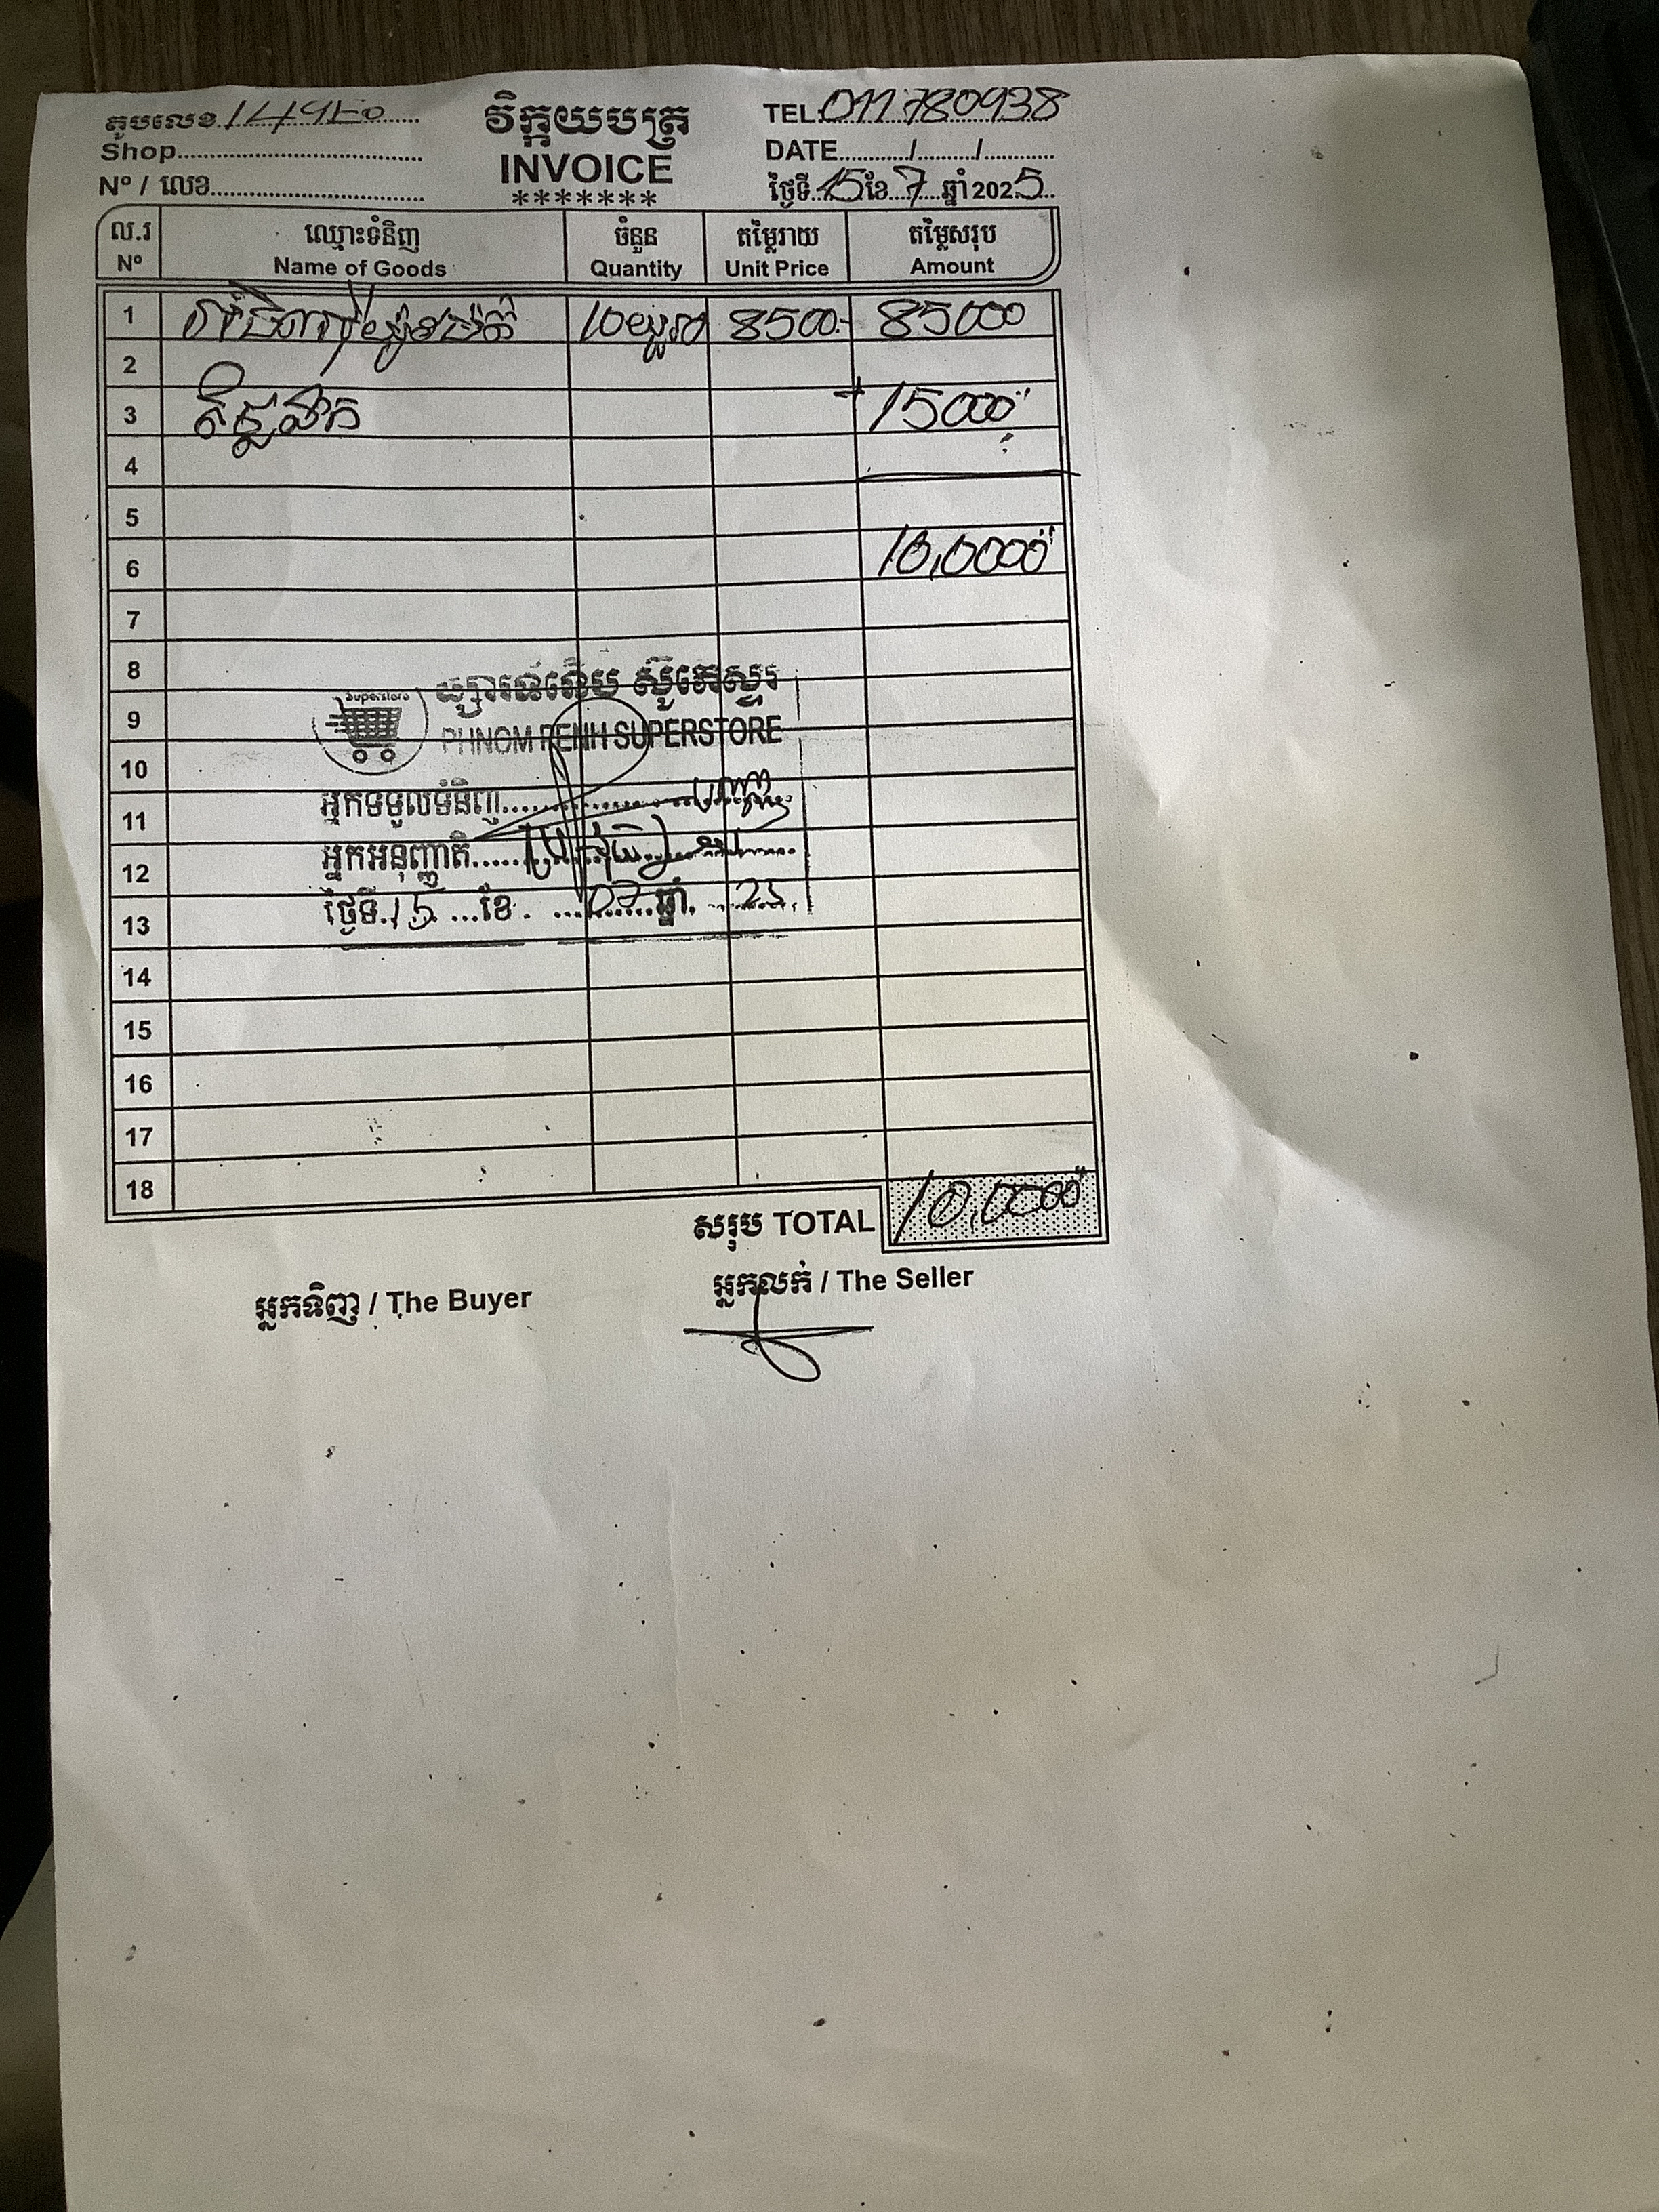 តូបលេខ
Shop
Nº / លេខ
វិក្កយបត្រ
INVOICE
*******
TEL: 011780938
DATE............/........../............
ថ្ងៃទី..15 ខែ..7...ឆ្នាំ 2025..
ល.រ ឈ្មោះទំនិញ ចំនួន តម្លៃរាយ តម្លៃសរុប
Nº Name of Goods Quantity Unit Price Amount
1 10 8500 85000
2
3 + 15000
4
5
6 10,0000
7
8
9
10
11
12
13
14
15
16
17
18
Superstore
PHNOM PENH SUPERSTORE
អ្នកទទួលទំនិញ
អ្នកអនុញ្ញាតិ
ថ្ងៃទី.15 ...ខែ. ...07...ឆ្នាំ. ..25..
សរុប TOTAL 10,0000
អ្នកទិញ / The Buyer
អ្នកលក់ / The Seller